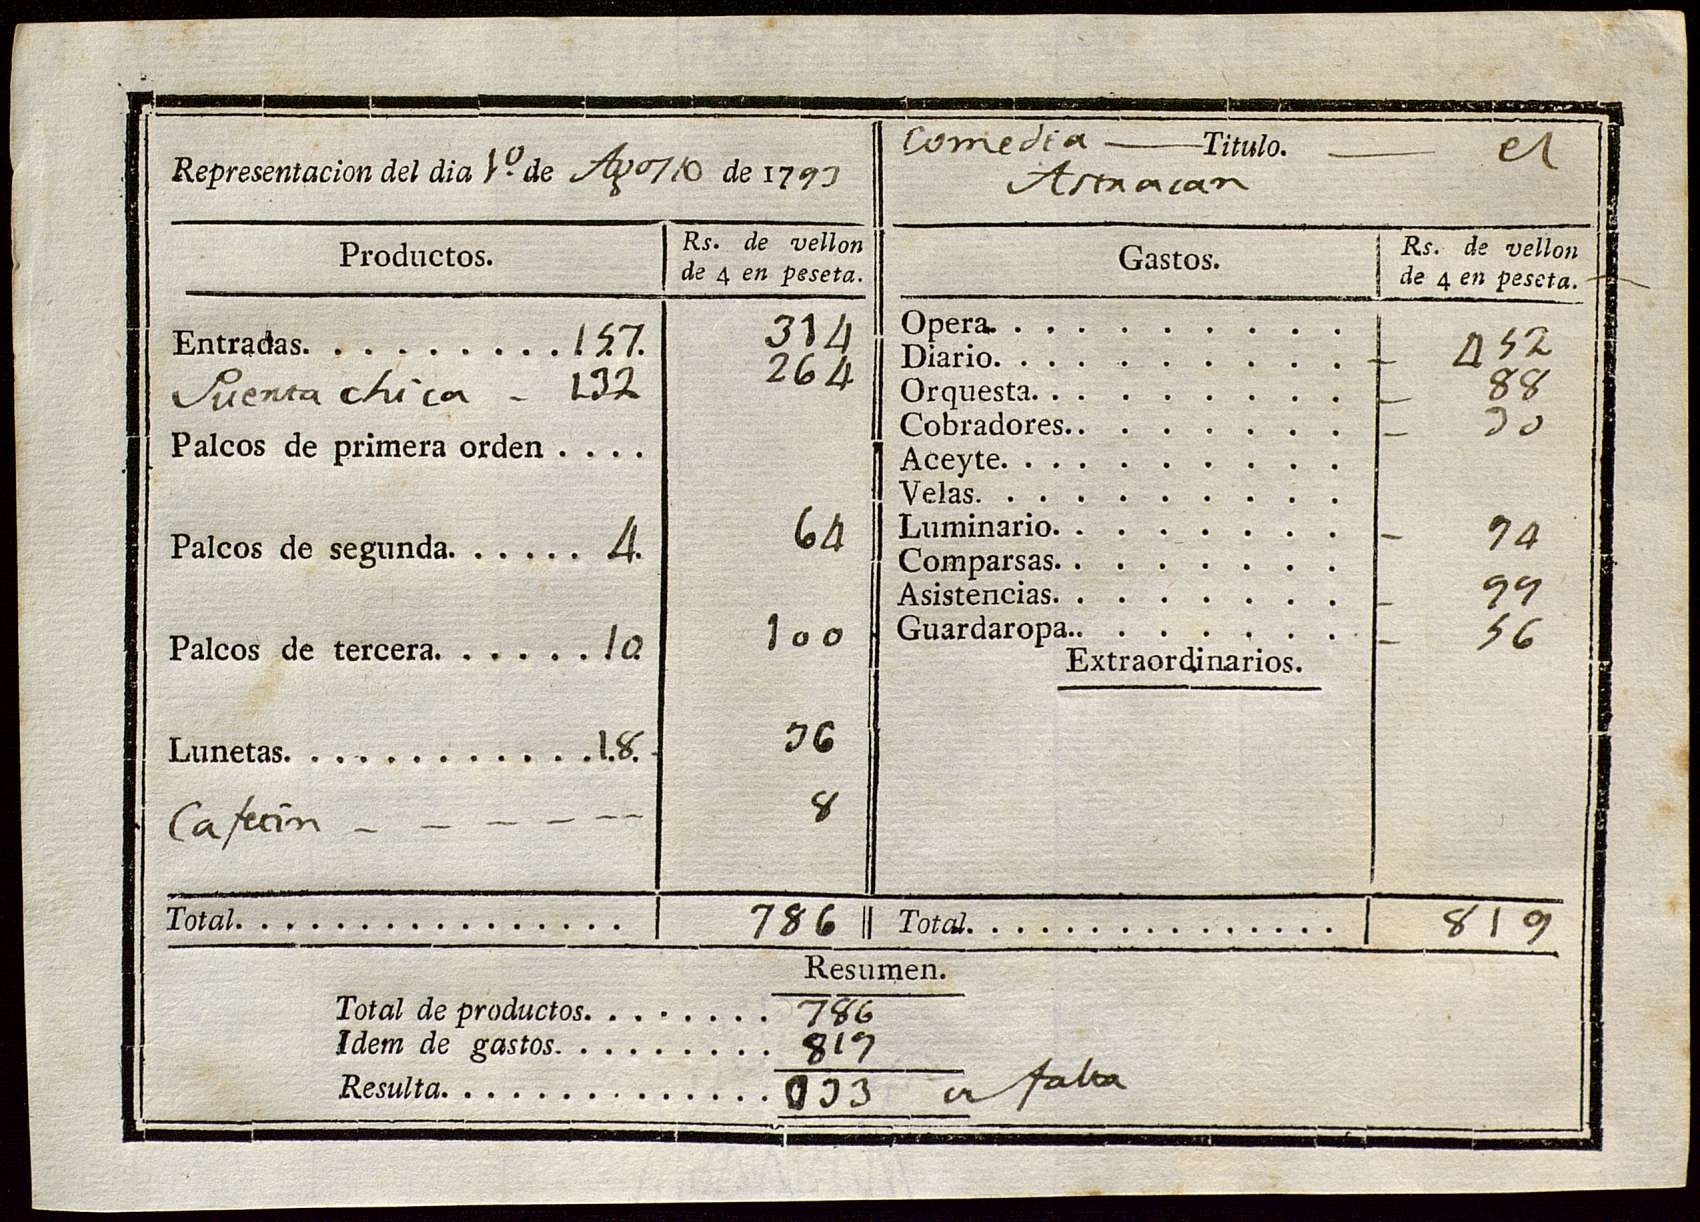 Representacion del dia 1º de Agosto de 1793
Comedia — Titulo. — el
Astracan
Productos.
Rs. de vellon
de 4 en peseta.
Entradas. . . . . . . . . 157. 314
Puerta chica - 132 264
Palcos de primera orden . . . .
Palcos de segunda. . . . . . 4. 64
Palcos de tercera. . . . . . 10. 100
Lunetas. . . . . . . . . . . . 18. 36
Cafetin - - - - - - 8
Total. . . . . . . . . . . . . . . . 786
Gastos.
Rs. de vellon
de 4 en peseta.
Opera. . . . . . . . . .
Diario. . . . . . . . . . - 452
Orquesta. . . . . . . . . - 88
Cobradores. . . . . . . . - 30
Aceyte. . . . . . . . . .
Velas. . . . . . . . . . .
Luminario. . . . . . . . - 94
Comparsas. . . . . . . .
Asistencias. . . . . . . . - 99
Guardaropa. . . . . . . . - 56
Extraordinarios.
Total. . . . . . . . . . . . . . . . 819
Resumen.
Total de productos. . . . . . . . 786
Idem de gastos. . . . . . . . . . 819
Resulta. . . . . . . . . . . . . . . 033 en falta